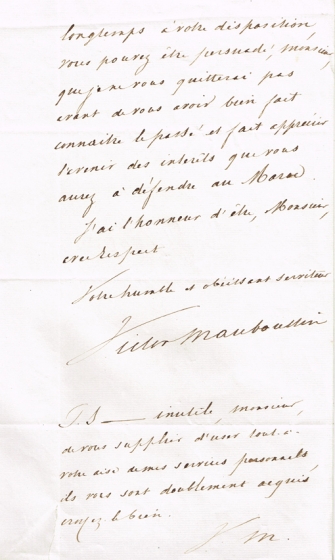 longtemps à votre disposition
vous pouvez être persuadé, monsieur,
que je ne vous quitterai pas
avant de vous avoir bien fait
connaitre le passé et fait apprécier
l'avenir des interêts que vous
aurez à défendre au Maroc.
J'ai l'honneur d'être, Monsieur,
avec Respect
Votre humble et obéissant serviteur
Victor Mauboussin
P.S — inutile, monsieur,
de vous supplier d'user tout à
votre aise de mes services personnels
ils vous sont doublement acquis,
croyez le bien.
V m.